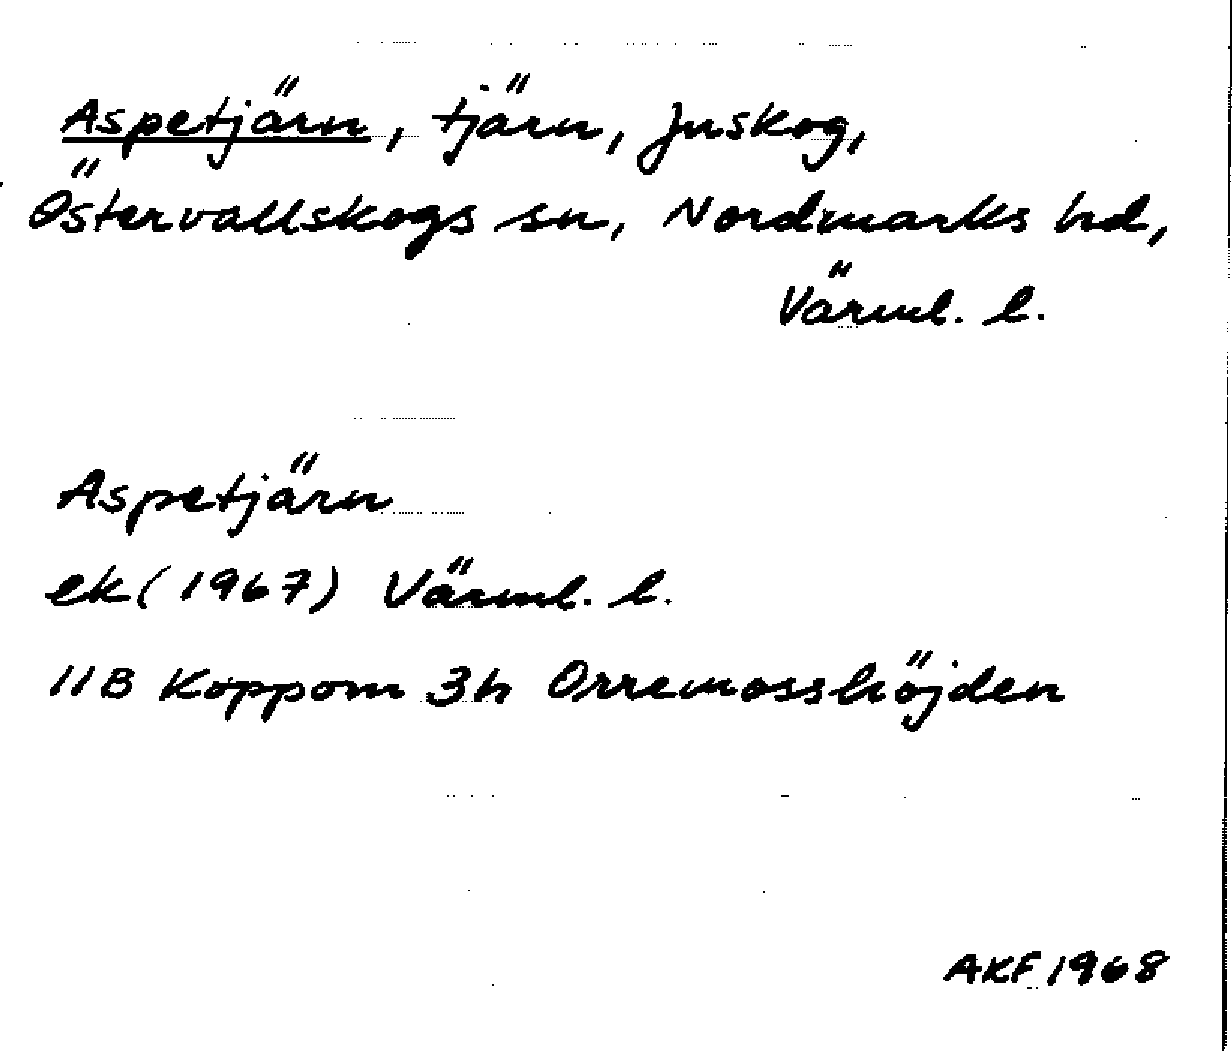 Aspetjärn, tjärn, Juskog,
Östervallskogs sn, Nordmarks hd,
Värml. l.
Aspetjärn
ek (1967) Värml. l.
11B Koppom 3h Orremosshöjden
AKF 1968